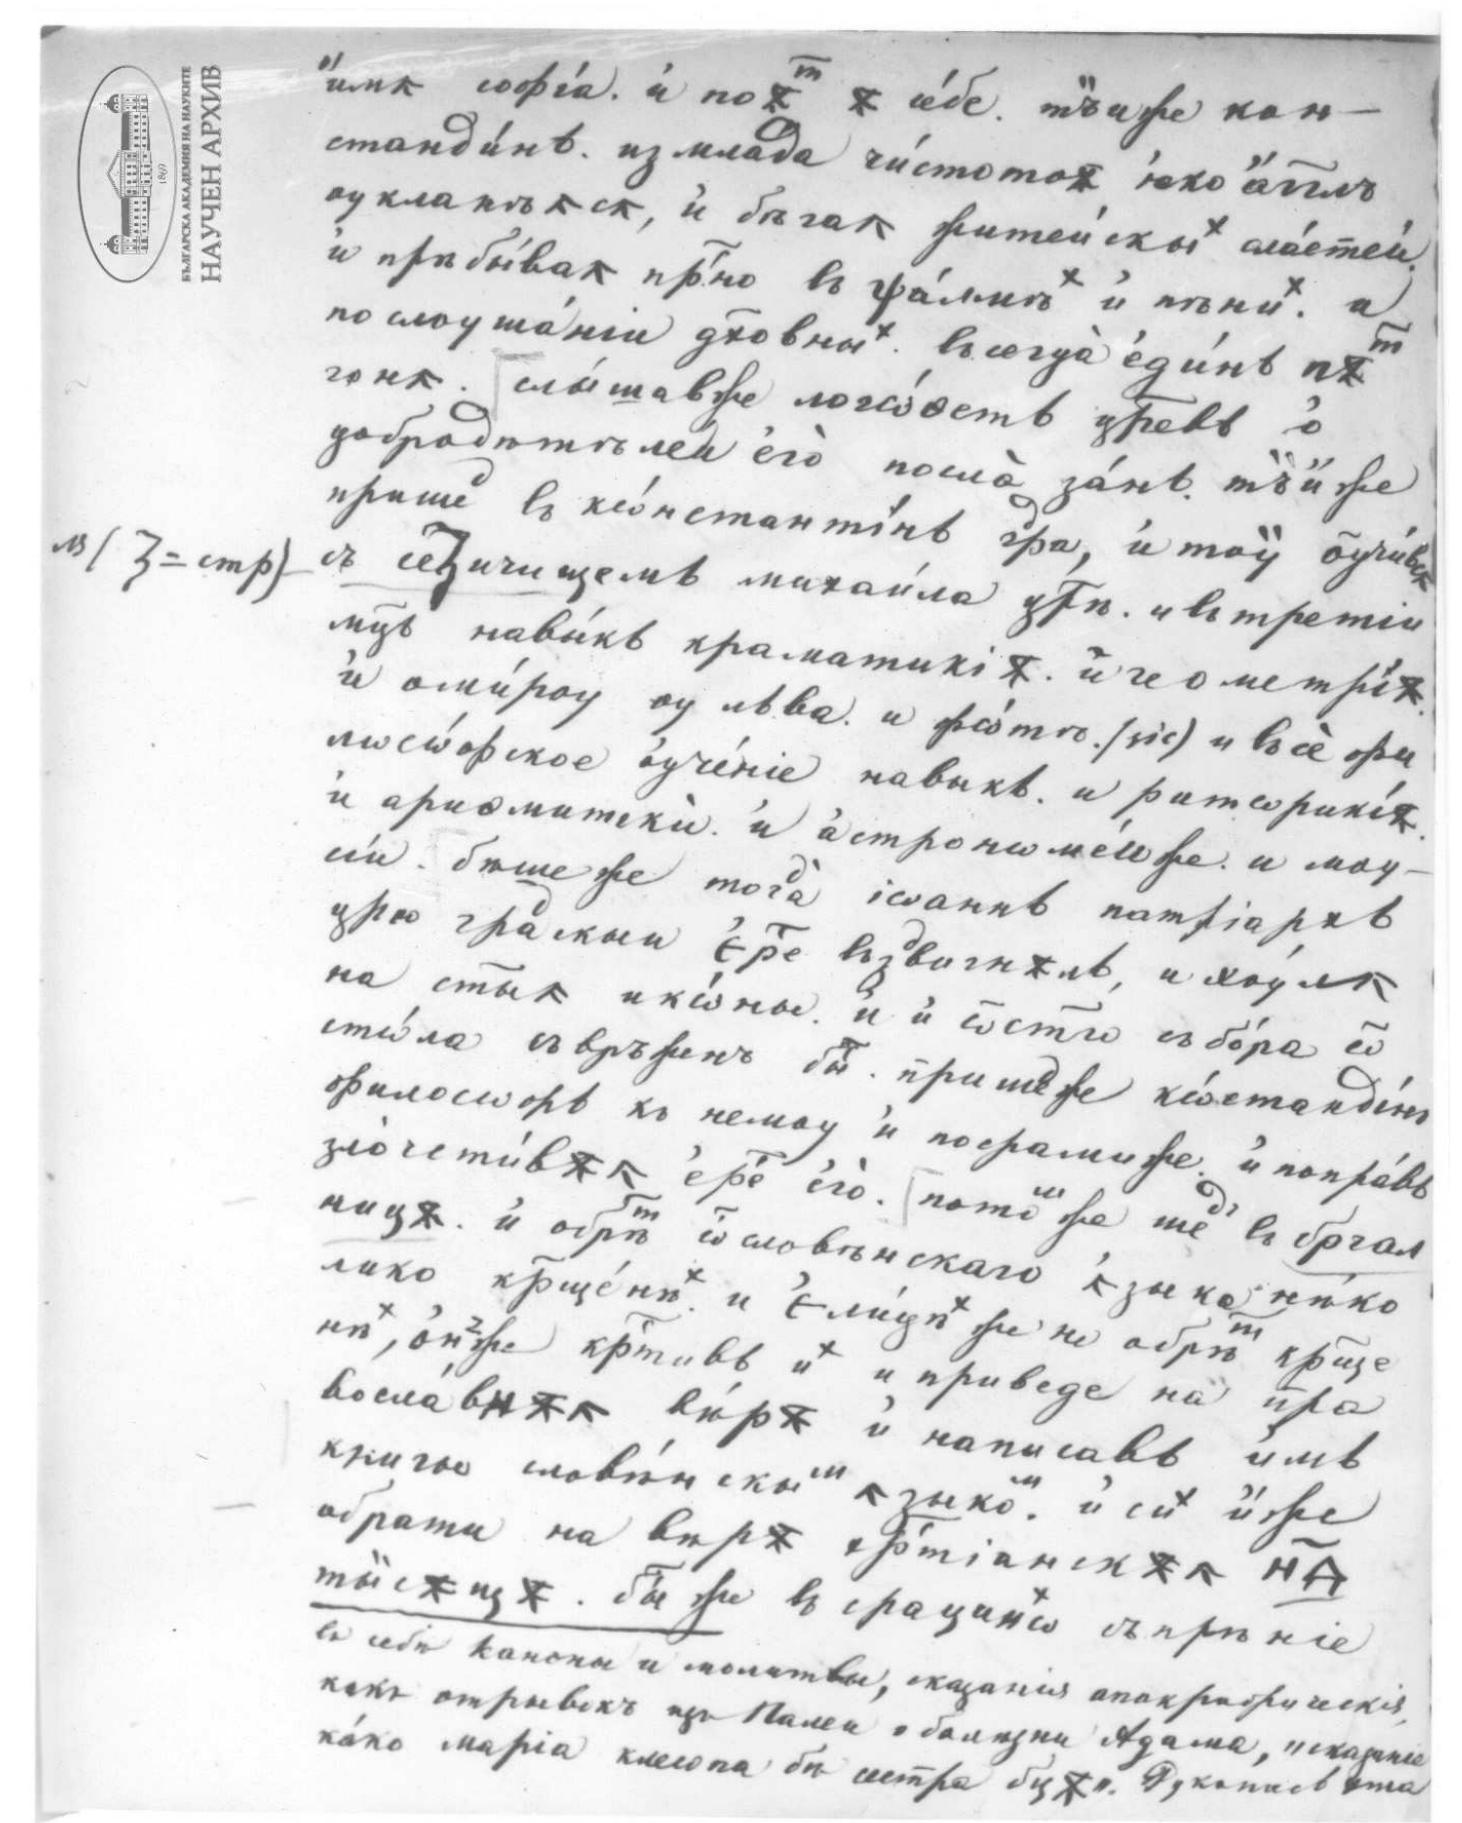 БЪЛГАРСКА АКАДЕМИЯ НА НАУКИТЕ
НАУЧЕН АРХИВ
1869
и҆мѧ софі́а. и҆ поѫⷮ ѫ себе́. тъ́иже кон-
станди́нь. измлада чи́стотоѫ ꙗко а҆гг҃лъ
оукланѣѧсѧ, и҆ бѣгаѧ житеи́скыⷯ сла́стеи.
и҆ прѣбы́ваѧ пр҃но въ ѱа́лмѣⷯ и҆ пѣниⷯ. и
послоуша́нїи дх҃овныⷯ. въсегда̀ е҆ди́нь пѫⷮ
гонѧ. [слы́шавже логѡ́ѳеть цр҃евь о҆
добродѣтѣлеи е҆го̀ посла̀ за́нь. тъ́иже
пришеⷣ въ кѡ́нстантінь гра, и҆ тоу̀ оучи́всѧ
м/(ꙁ = стр) съ сеꙁичищемь михаи́ла цр҃ѣ. и въ третїи
мц҃ь навы́кь краматикїѫ. и҆ геометрі́ѫ.
и҆ оми́роу оу льва. и фѡ́тѣ. (sic) и въсѐ фи
лосо́фское оуче́нїе навыкь. и риторикі́ѫ.
и҆ ариѳмитекїи. и҆ а҆строномѐѫже. и моу-
сїи. бѣшеже тогда̀ іѡаннь патріархь
цр҃ю граⷣскыи є҆ре҃ въздвигнѫль, и хоу́лѧ
на ст҃ыѧ икѡ́ны. и҆ и҆ ѿст҃го събо́ра ѿ
сто́ла съвръженъ бы҃. пришеⷣже кѡ́стандінъ
философь къ немоу и҆ посрамиже. и҆ попра́вь
злочести́вѫѧ є҆ре҃ є҆го̀. [потоⷨ же шеⷣ въ брган
ницѫ. и҆ обрѣⷮ ѿ словѣнскаго ѧ҆зыка нѣко
лико кр҃ще́нѣⷯ. и є҆ли́цѣⷯ же не обрѣⷮ кр҃ще
нѣⷯ, ѻ҆нже кр҃тивь иⷯ и приведе на пра
восла́внѫѧ вѣ́рѫ и҆ написавь и҆мь
книгы словѣ́нскыⷨ ѧзыкоⷨ. и҆ сиⷯ и҆же
обрати на вѣрѫ хр҃тїанскѫѧ н҃д
ты́сѫщѫ. бы҃ же въ срацинѡⷯ съпрѣнїе
въ себѣ каноны и молитвы, сказанія апокрифическія,
какъ отрывокъ изъ Палеи о болѣзни Адама, „сказаніе
ка́ко марїа клеопа бѣ сестра бц҃ѫ". Рукопись эта